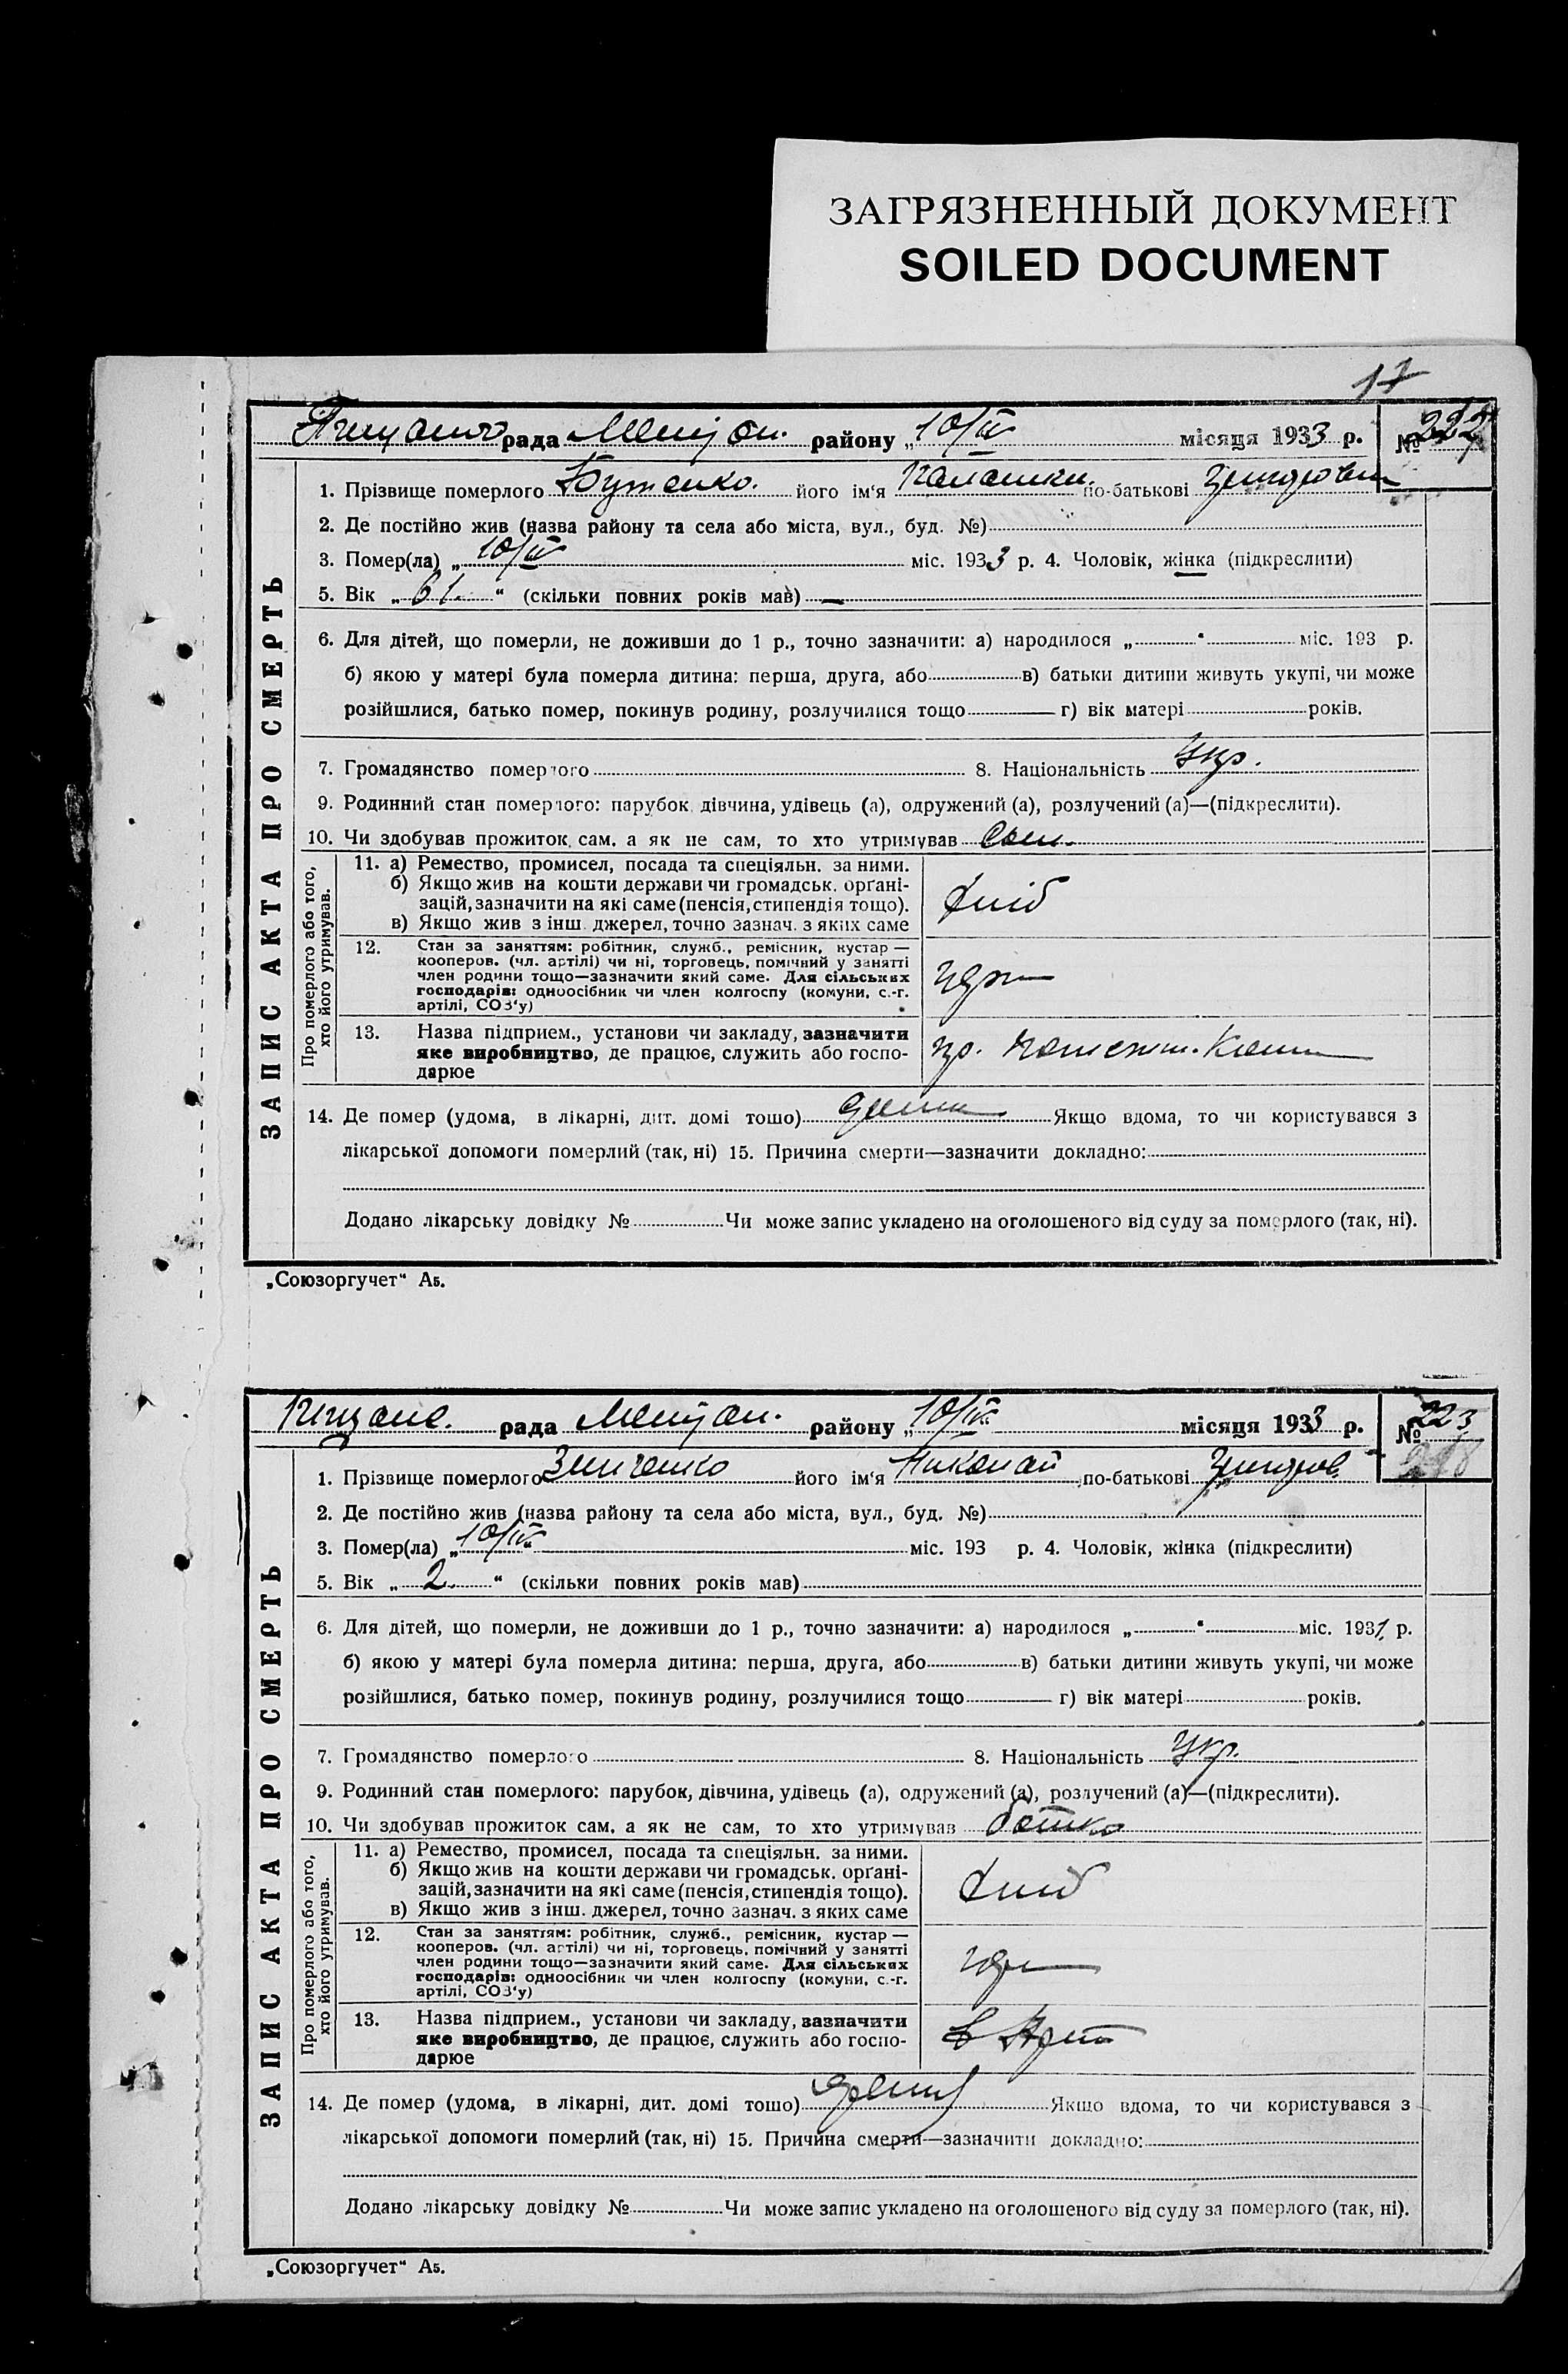 ЗАГРЯЗНЕННЫЙ ДОКУМЕНТ
SOILED DOCUMENT
17
рада районy „10/IV місяця 1933 р. № 222
1. Прізвище померлого Бутенко. його ім‘я по-батькові
2. Де постійно жив (назва району та села або міста, вул., буд. №)
3. Помер(ла) „10/IV міс. 1933 р. 4. Чоловік, жінка (підкреслити)
5. Вік „61.“ (скільки повних років мав) —
6. Для дітей, що померли, не доживши до 1 р., точно зазначити: а) народилося „ “ міс. 193 р.
б) якою у матері була померла дитина: перша, друга, або в) батьки дитини живуть укупі, чи може
розійшлися, батько помер, покинув родину, розлучилися тощо г) вік матері років.
7. Громадянство померлого 8. Національність Укр.
9. Родинний стан померлого: парубок, дівчина, удівець (а), одружений (а), розлучений (а)—(підкреслити).
10. Чи здобував прожиток сам, а як не сам, то хто утримував
ЗАПИС АКТА ПРО СМЕРТЬ
Про померлого або того, хто його утримував.
11. а) Ремество, промисел, посада та спеціяльн. за ними.
б) Якщо жив на кошти держави чи громадськ. орґані-
зацій, зазначити на які саме (пенсія, стипендія тощо).
в) Якщо жив з інш. джерел, точно зазнач. з яких саме
12. Стан за заняттям: робітник, служб., ремісник, кустар —
кооперов. (чл. артілі) чи ні, торговець, помічний у занятті
член родини тощо—зазначити який саме. Для сільських
господарів: одноосібник чи член колгоспу (комуни, с.-г.
артілі, СОЗ‘у)
13. Назва підприєм., установи чи закладу, зазначити
яке виробництво, де працює, служить або госпо-
дарює
14. Де помер (удома, в лікарні, дит. домі тощо) Якщо вдома, то чи користувався з
лікарської допомоги померлий (так, ні) 15. Причина смерти—зазначити докладно:
Додано лікарську довідку № Чи може запис укладено на оголошеного від суду за померлого (так, ні).
„Союзоргучет“ А5.
рада району „10/IV місяця 1933 р. № 223
1. Прізвище померлого Зинченко його ім‘я Николай по-батькові
2. Де постійно жив (назва району та села або міста, вул., буд. №)
3. Помер(ла) „10/IV“ міс. 193 р. 4. Чоловік, жінка (підкреслити)
5. Вік „2.“ (скільки повних років мав)
6. Для дітей, що померли, не доживши до 1 р., точно зазначити: а) народилося „ “ міс. 1931 р.
б) якою у матері була померла дитина: перша, друга, або в) батьки дитини живуть укупі, чи може
розійшлися, батько помер, покинув родину, розлучилися тощо г) вік матері років.
7. Громадянство померлого 8. Національність Укр.
9. Родинний стан померлого: парубок, дівчина, удівець (а), одружений (а), розлучений (а)—(підкреслити).
10. Чи здобував прожиток сам, а як не сам, то хто утримував батько
ЗАПИС АКТА ПРО СМЕРТЬ
Про померлого або того, хто його утримував.
11. а) Ремество, промисел, посада та спеціяльн. за ними.
б) Якщо жив на кошти держави чи громадськ. орґані-
зацій, зазначити на які саме (пенсія, стипендія тощо).
в) Якщо жив з інш. джерел, точно зазнач. з яких саме
12. Стан за заняттям: робітник, служб., ремісник, кустар —
кооперов. (чл. артілі) чи ні, торговець, помічний у занятті
член родини тощо—зазначити який саме. Для сільських
господарів: одноосібник чи член колгоспу (комуни, с.-г.
артілі, СОЗ‘у)
13. Назва підприєм., установи чи закладу, зазначити
яке виробництво, де працює, служить або госпо-
дарює
14. Де помер (удома, в лікарні, дит. домі тощо) Якщо вдома, то чи користувався з
лікарської допомоги померлий (так, ні) 15. Причина смерти—зазначити докладно:
Додано лікарську довідку № Чи може запис укладено на оголошеного від суду за померлого (так, ні).
„Союзоргучет“ А5.